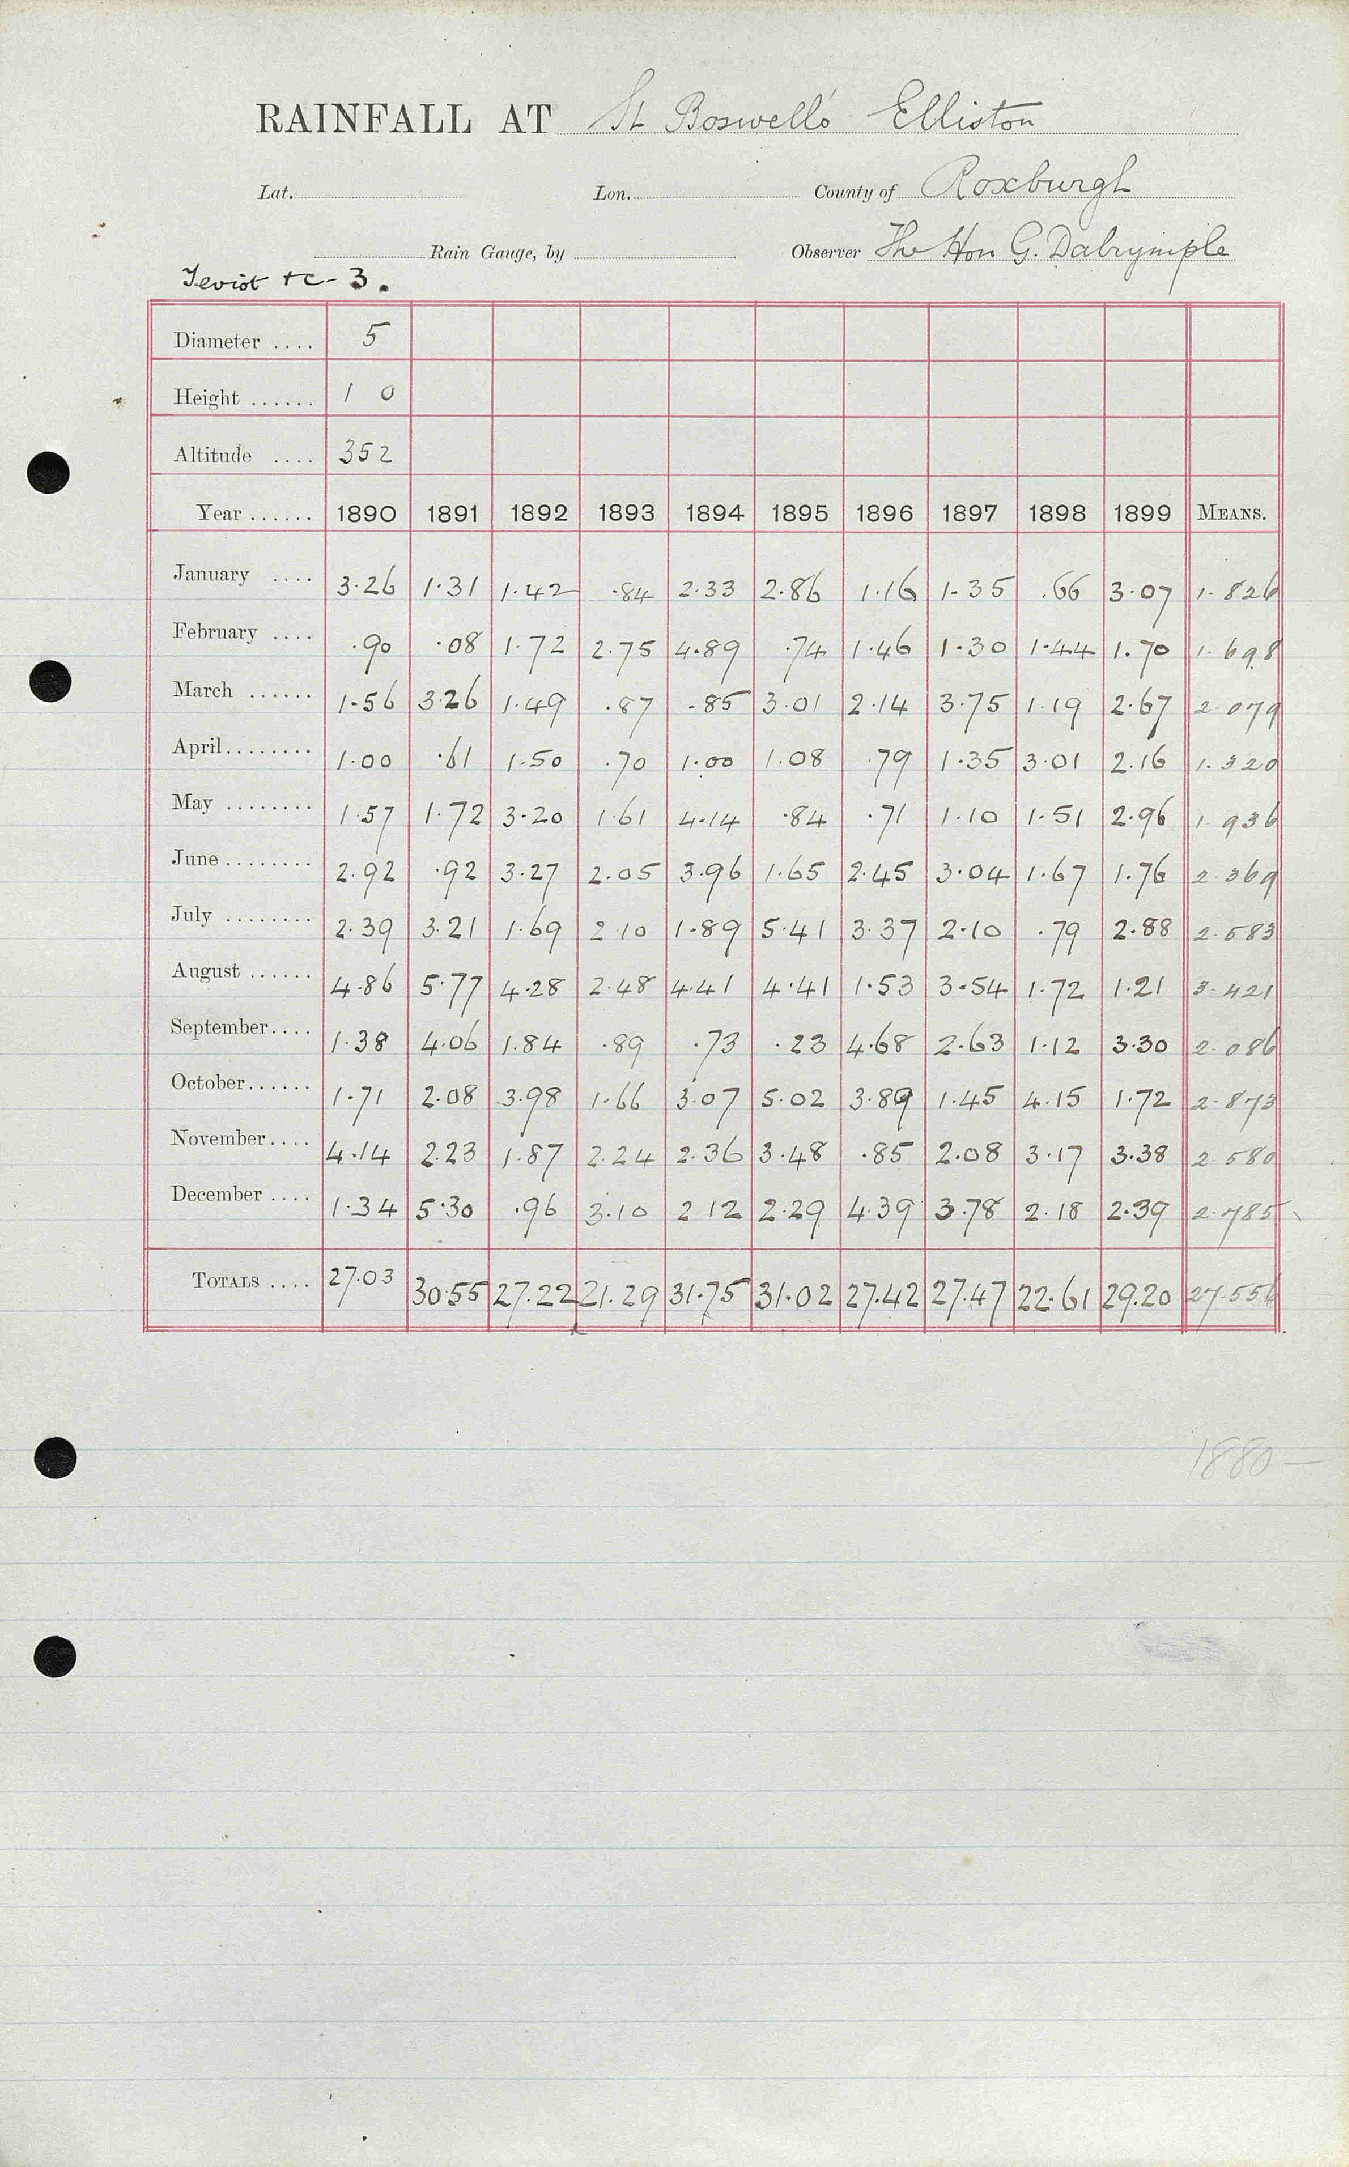 RAINFALL AT St Boswell's Elliston
Lat. Lon. County of Roxburgh
Rain Gauge, by Observer The Hon G. Dalrymple
Teviot &c - 3.
Diameter .... 5
Height ...... 1 0
Altitude .... 352
Year ...... 1890 1891 1892 1893 1894 1895 1896 1897 1898 1899 MEANS.
January .... 3.26 1.31 1.42 .84 2.33 2.86 1.16 1.35 .66 3.07 1.826
February .... .90 .08 1.72 2.75 4.89 .74 1.46 1.30 1.44 1.70 1.698
March ...... 1.56 3.26 1.49 .87 .85 3.01 2.14 3.75 1.19 2.67 2.079
April........ 1.00 .61 1.50 .70 1.00 1.08 .79 1.35 3.01 2.16 1.320
May ........ 1.57 1.72 3.20 1.61 4.14 .84 .71 1.10 1.51 2.96 1.936
June ........ 2.92 .92 3.27 2.05 3.96 1.65 2.45 3.04 1.67 1.76 2.369
July ........ 2.39 3.21 1.69 2.10 1.89 5.41 3.37 2.10 .79 2.88 2.583
August ...... 4.86 5.77 4.28 2.48 4.41 4.41 1.53 3.54 1.72 1.21 3.421
September.... 1.38 4.06 1.84 .89 .73 .23 4.68 2.63 1.12 3.30 2.086
October...... 1.71 2.08 3.98 1.66 3.07 5.02 3.89 1.45 4.15 1.72 2.873
November.... 4.14 2.23 1.87 2.24 2.36 3.48 .85 2.08 3.17 3.38 2.580
December .... 1.34 5.30 .96 3.10 2.12 2.29 4.39 3.78 2.18 2.39 2.785
TOTALS .... 27.03 30.55 27.22 21.29 31.75 31.02 27.42 27.47 22.61 29.20 27.556
1880 —